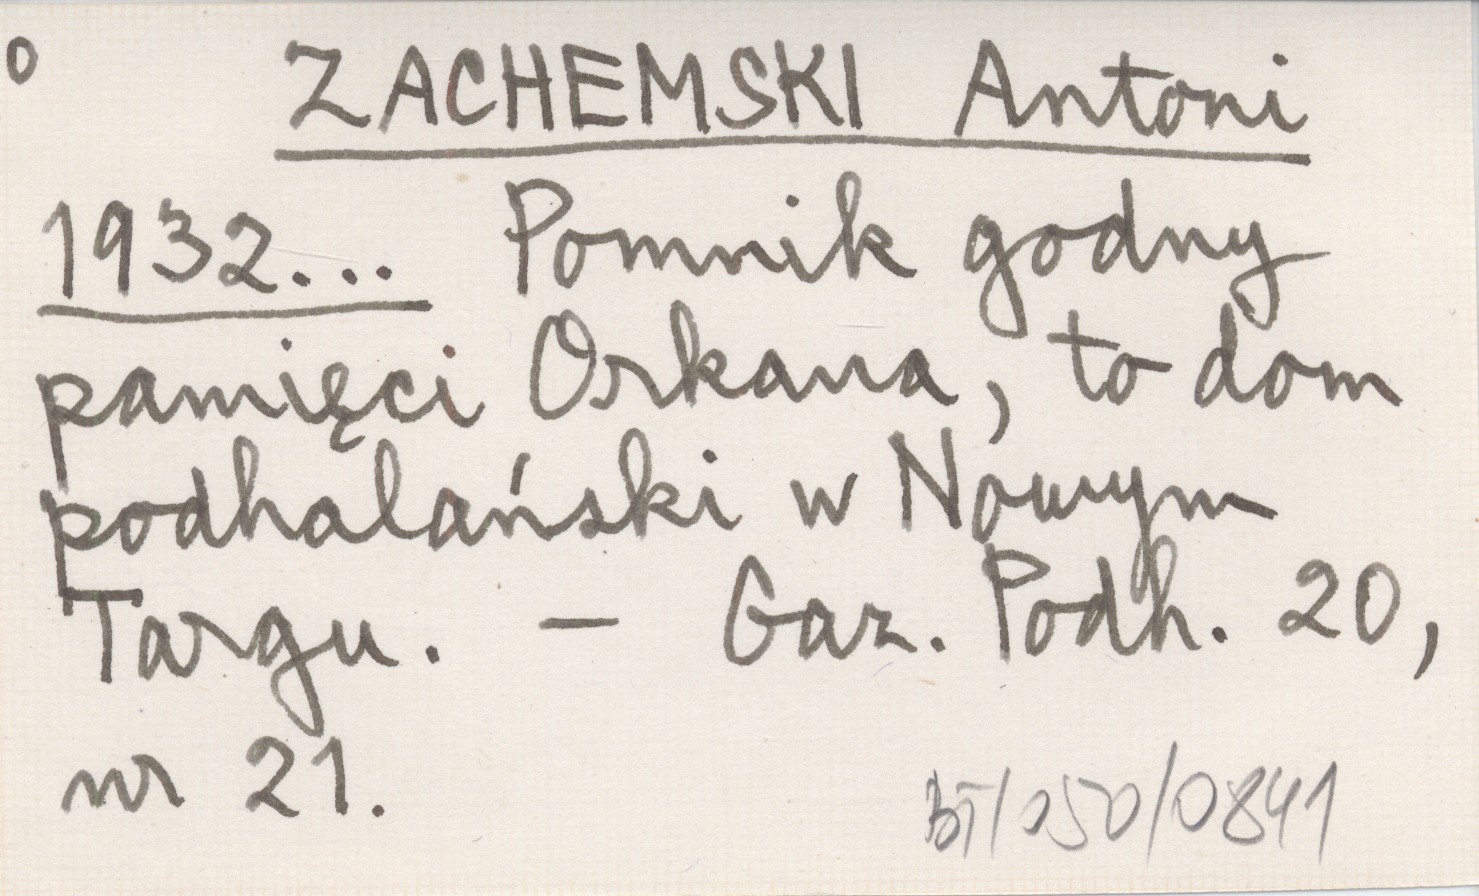 o ZACHEMSKI Antoni
1932... Pomnik godny
pamięci Orkana, to dom
podhalański w Nowym
Targu. – Gaz. Podh. 20,
nr 21.
BT/050/0841